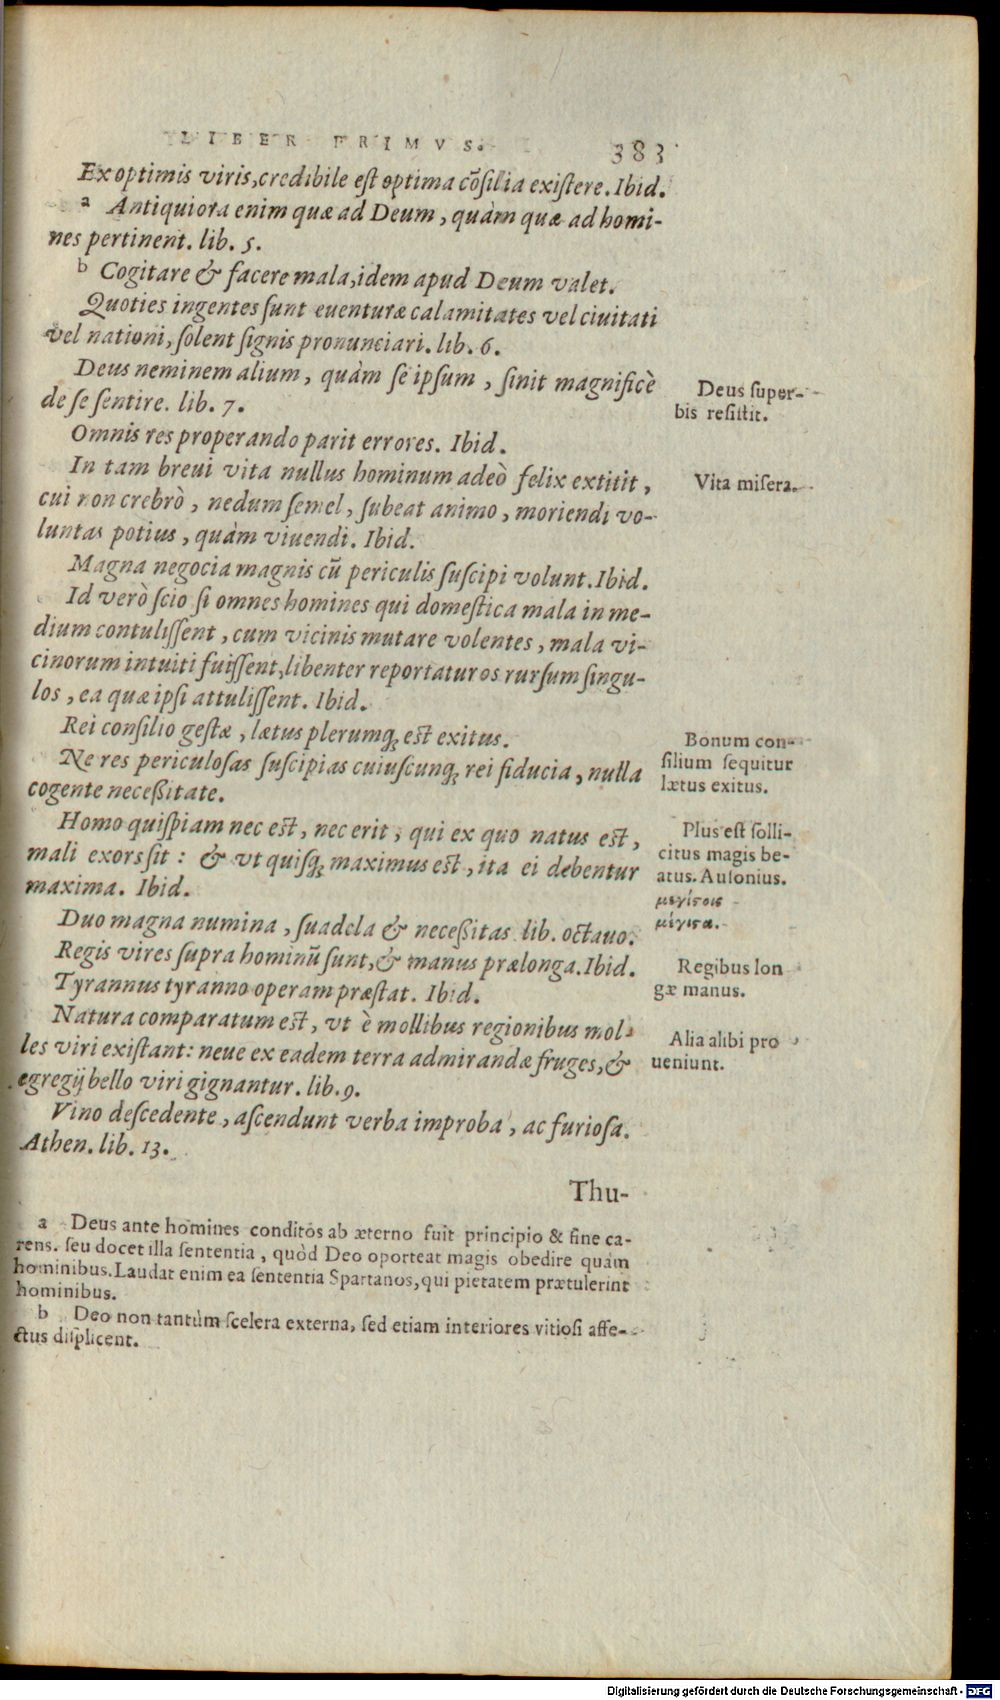 LIBER PRIMVS. 383
Ex optimis viris, credibile est optima cõsilia existere. Ibid.
a Antiquiora enim quæ ad Deum, quàm quæ ad homi-
nes pertinent. lib. 5.
b Cogitare & facere mala, idem apud Deum valet.
Quoties ingentes sunt euenturæ calamitates vel ciuitati
vel nationi, solent signis pronunciari. lib. 6.
Deus neminem alium, quàm se ipsum, sinit magnificè
de se sentire. lib. 7.
Deus super-
bis resistit.
Omnis res properando parit errores. Ibid.
In tam breui vita nullus hominum adeò felix extitit,
cui non crebrò, nedum semel, subeat animo, moriendi vo-
luntas potius, quàm viuendi. Ibid.
Vita misera.
Magna negocia magnis cũ periculis suscipi volunt. Ibid.
Id verò scio si omnes homines qui domestica mala in me-
dium contulissent, cum vicinis mutare volentes, mala vi-
cinorum intuiti fuissent, libenter reportaturos rursum singu-
los, ea quæ ipsi attulissent. Ibid.
Rei consilio gestæ, lætus plerumq; est exitus.
Ne res periculosas suscipias cuiuscunq; rei fiducia, nulla
cogente necessitate.
Bonum con-
silium sequitur
lætus exitus.
Homo quispiam nec est, nec erit, qui ex quo natus est,
mali exors sit: & vt quisq; maximus est, ita ei debentur
maxima. Ibid.
Plus est solli-
citus magis be-
atus. Ausonius.
μεγίστοις
μέγιστα.
Duo magna numina, suadela & necessitas lib. octauo.
Regis vires supra hominũ sunt, & manus prælonga. Ibid.
Regibus lon
gæ manus.
Tyrannus tyranno operam præstat. Ibid.
Natura comparatum est, vt è mollibus regionibus mol-
les viri existant: neue ex eadem terra admirandæ fruges, &
egregij bello viri gignantur. lib. 9.
Alia alibi pro
ueniunt.
Vino descedente, ascendunt verba improba, ac furiosa.
Athen. lib. 13.
Thu-
a Deus ante homines conditos ab æterno fuit principio & fine ca-
rens. seu docet illa sententia, quòd Deo oporteat magis obedire quàm
hominibus. Laudat enim ea sententia Spartanos, qui pietatem prætulerint
hominibus.
b Deo non tantùm scelera externa, sed etiam interiores vitiosi affe-
ctus displicent.
Digitalisierung gefördert durch die Deutsche Forschungsgemeinschaft - DFG